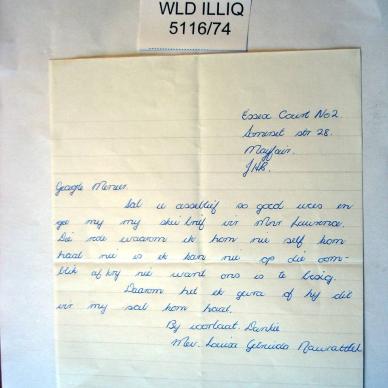 WLD ILLIQ
5116/74
Essex Court No 2.
Somerset str 28.
Mayfair.
JHB.
Geagte Meneer
Sal u asseblief so goed wees en
gee my my skei brief vir Mnr Lawrence.
Die rede waarom ek hom nie self kom
haal nie is ek kan nie op die oom-
blik af kry nie want ons is te besig.
Daarom het ek gevra of hy dit
vir my sal kom haal.
By voorbaat. Dankie
Mev. Louisa